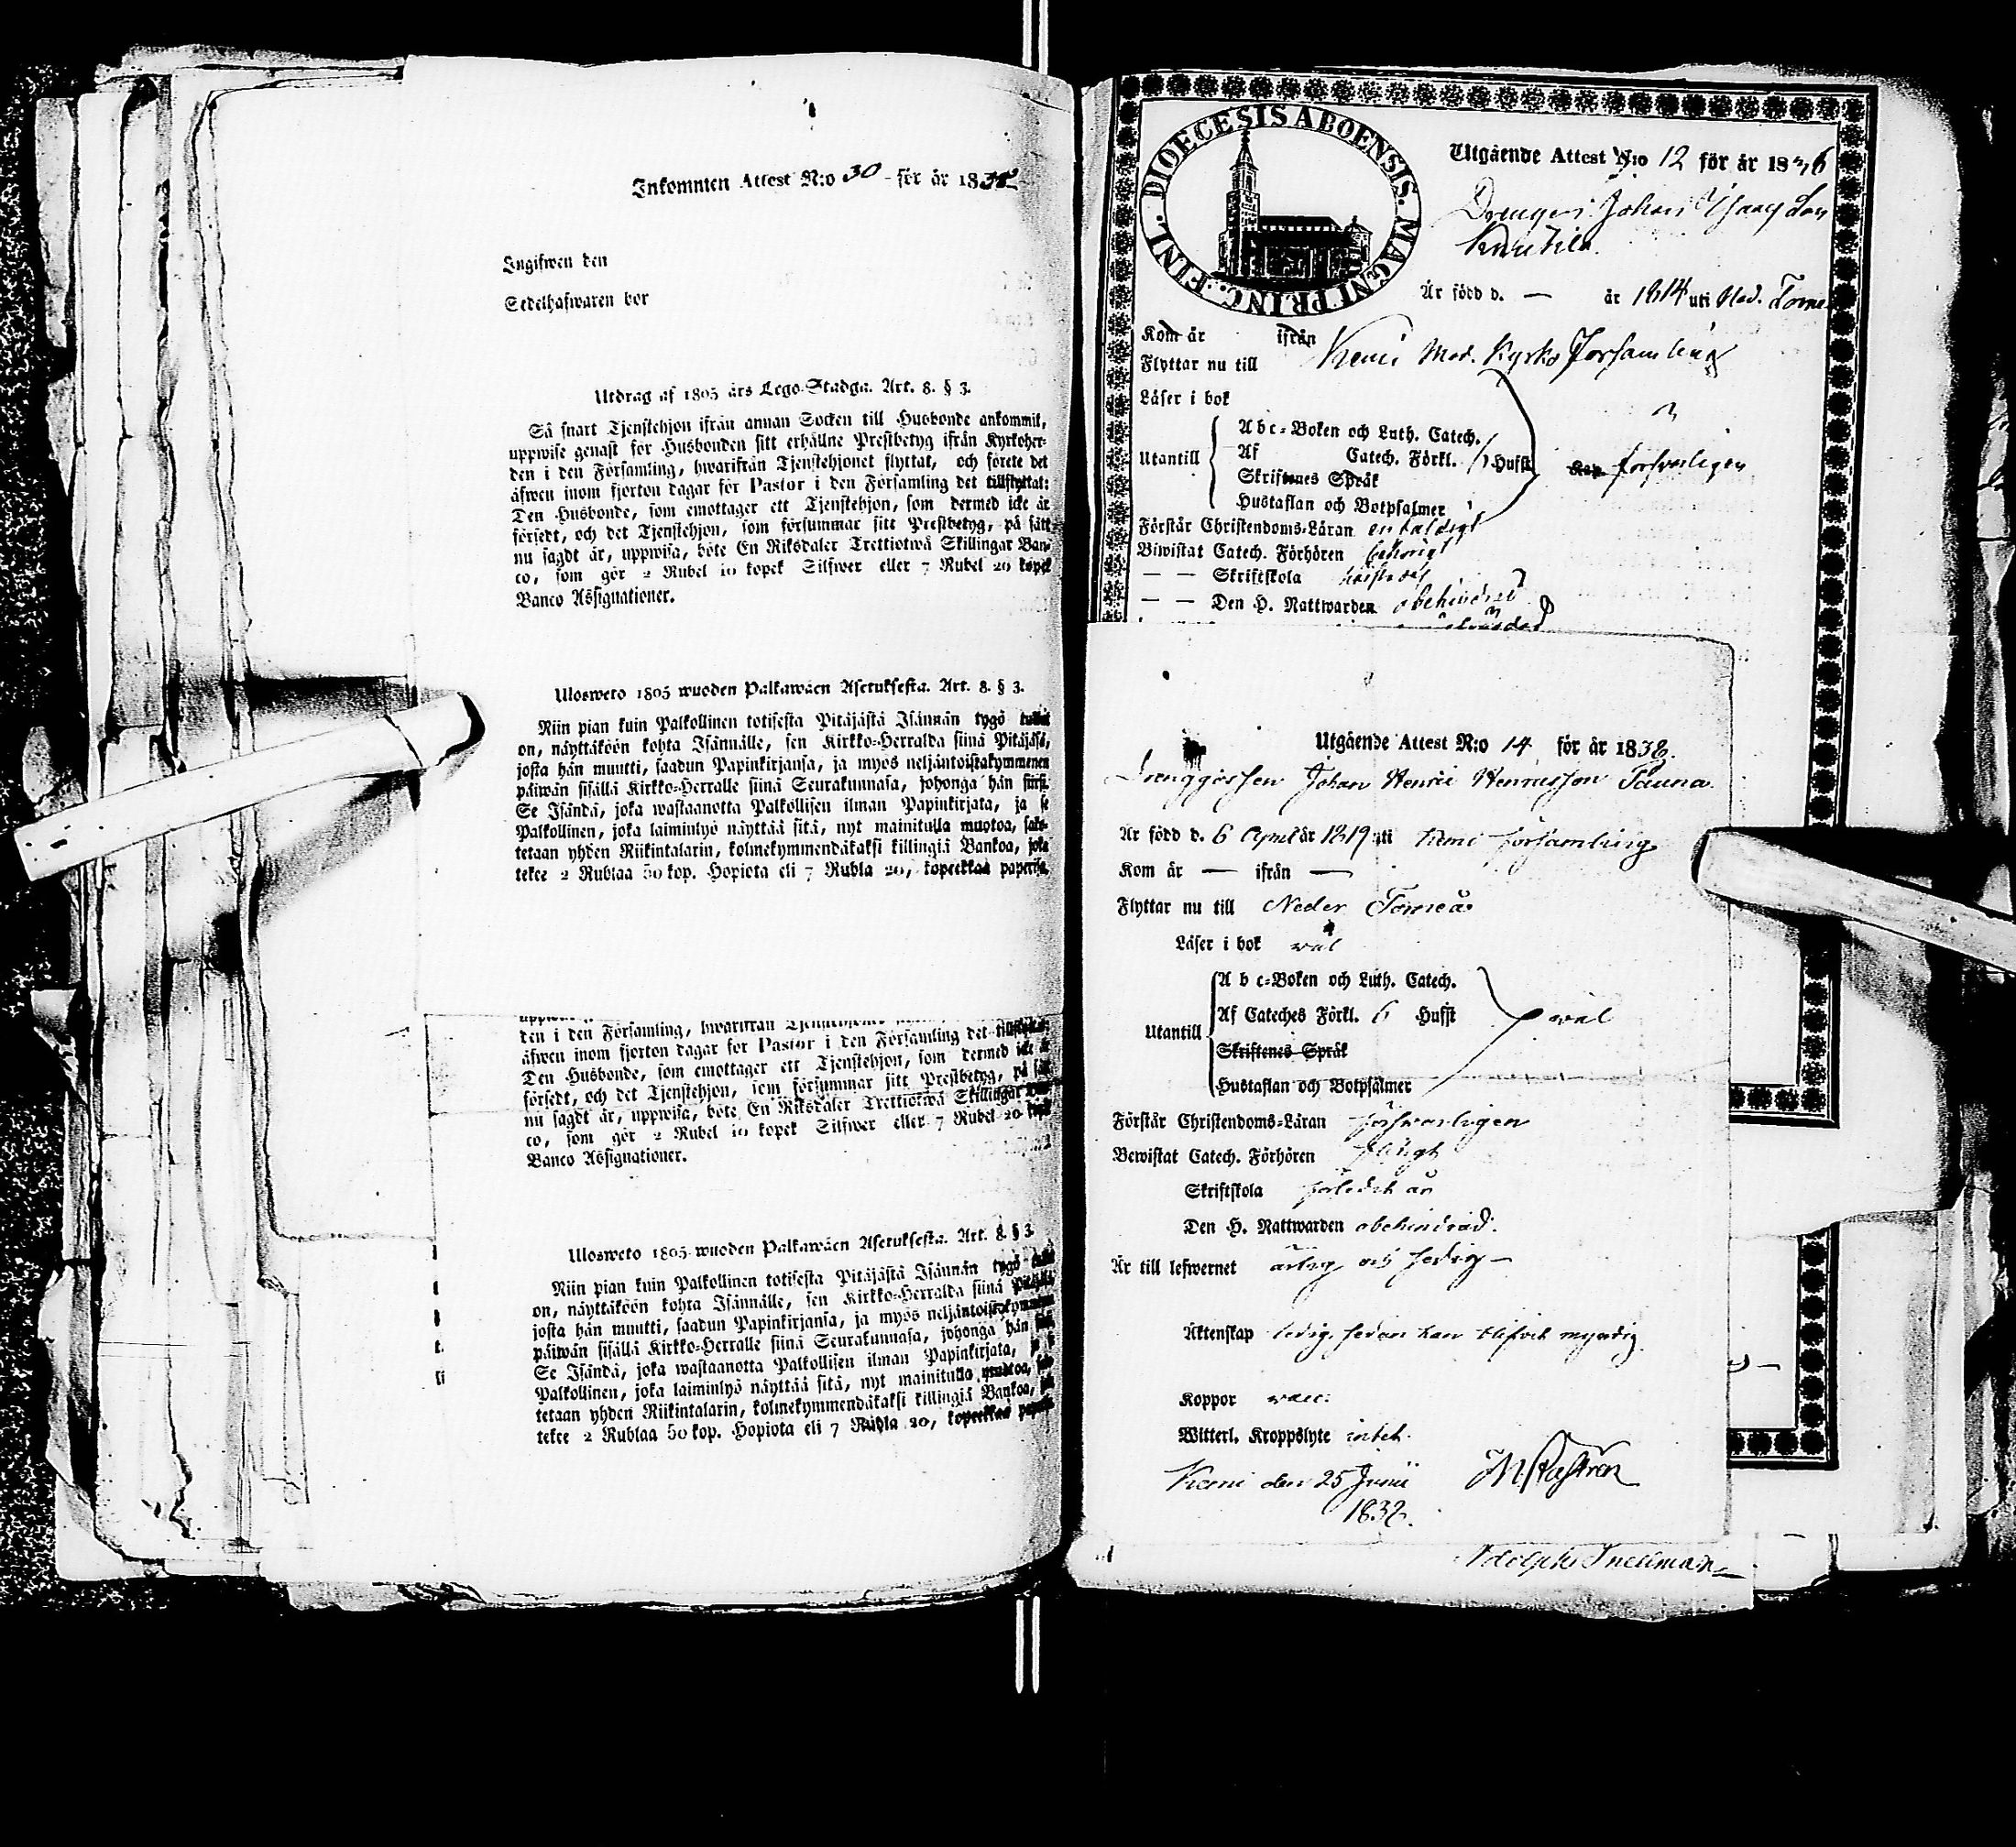 Inkommen Attest N:o 30 för år 1838
Ingifwen den
Sedelhafwaren bor
Utdrag af 1805 års Lego-Stadga. Art. 8. § 3.
Så snart Tjenstehjon ifrån annan Socken till Husbonde ankommit,
uppwise genast för Husbonden sitt erhållne Prestbetyg ifrån Kyrkoher-
den i den Församling, hwarifrån Tjenstehjonet flyttat, och förete det
äfwen inom fjorton dagar för Pastor i den Församling det tillflyttat:
Den Husbonde, som emottager ett Tjenstehjon, som dermed icke är
försedt, och det Tjenstehjon, som försummar sitt Prestbetyg, på sätt
nu sagdt är, uppwisa, böte En Riksdaler Trettiotwå Skillingar Ban-
co, som gör 2 Rubel 10 kopek Silfwer eller 7 Rubel 20 kopek
Banco Assignationer.
Ulosweto 1805 wuoden Palkawäen Asetuksesta. Art. 8. § 3.
Niin pian kuin Palkollinen toisesta Pitäjästä Isännän tygö tullut
on, näyttäköön kohta Isännälle, sen Kirkko-Herralda siinä Pitäjäsä,
josta hän muutti, saadun Papinkirjansa, ja myös neljäntoistakymmenen
päiwän sisällä Kirkko-Herralle siinä Seurakunnasa, johonga hän siirsi.
Se Isändä, joka wastaanotta Palkollisen ilman Papinkirjata, ja se
Palkollinen, joka laiminlyö näyttää sitä, nyt mainitulla muotoa, sako-
tetaan yhden Riikintalarin, kolmekymmendäkaksi killingiä Bankoa, joka
tekee 2 Rublaa 50 kop. Hopiota eli 7 Rubla 20, kopeekkaa paperisa.
den i den Församling, hwarifrån Tjenstehjonet
äfwen inom fjorton dagar för Pastor i den Församling det tillflyttat:
Den Husbonde, som emottager ett Tjenstehjon, som dermed icke är
försedt, och det Tjenstehjon, som försummar sitt Prestbetyg, på sätt
nu sagdt är, uppwisa, böte En Riksdaler Trettiotwå Skillingar Ban-
co, som gör 2 Rubel 10 kopek Silfwer eller 7 Rubel 20 kopek
Banco Assignationer.
Ulosweto 1805 wuoden Palkawäen Asetuksesta. Art. 8. § 3.
Niin pian kuin Palkollinen toisesta Pitäjästä Isännän tygö tullut
on, näyttäköön kohta Isännälle, sen Kirkko-Herralda siinä Pitäjäsä
josta hän muutti, saadun Papinkirjansa, ja myös neljäntoistakymmenen
päiwän sisällä Kirkko-Herralle siinä Seurakunnasa, johonga hän
Se Isändä, joka wastaanotta Palkollisen ilman Papinkirjata,
Palkollinen, joka laiminlyö näyttää sitä, nyt mainitulla muotoa,
tetaan yhden Riikintalarin, kolmekymmendäkaksi killingiä Bankoa,
tekee 2 Rublaa 50 kop. Hopiota eli 7 Rubla 20, kopeekkaa
DIOECESIS ABOENSIS. MAGNI PRINC. FINL.
Utgående Attest N:o 12 för år 1836
Drengen Johan Isaacsson
Knutila.
Är född d. — år 1814 uti Ned. Torne
Kom år ifrån
Flyttar nu till Kemi Mod. Kyrko Församling
Läser i bok
Utantill
A b c-Boken och Luth. Catech.
Af Catech. Förkl. Hufst
Skriftenes Språk
Hustaflan och Botpsalmer
försvarligen
Förstår Christendoms-Läran enfaldigt
Biwistat Catech. Förhören behörigt
— — Skriftskola
— — Den H. Nattwarden obehindrad
Utgående Attest N:o 14 för år 1838.
Drenggossen Johan Henric Henricsson Tauna.
Är född d. 6 April år 1819 uti Kemi församling
Kom år — ifrån —
Flyttar nu till Neder Torneå
Läser i bok wäl
Utantill
A b c-Boken och Luth. Catech.
Af Cateches Förkl. 6 Hufst
Skriftenes Språk
Hustaflan och Botpsalmer
wäl
Förstår Christendoms-Läran försvarligen
Bewistat Catech. Förhören flitigt
Skriftskola förledet år
Den H. Nattwarden obehindrad.
Är till lefwernet ärlig och sedig —
Äktenskap ledig, sedan han blifvit myndig.
Koppor vacc:
Witterl. Kroppslyte intet.
Kemi den 25 Junii
1838.
Adolph Snellman